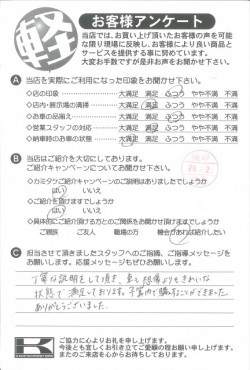 軽
お客様アンケート
当店では、お買い上げ頂いたお客様の声を可能
な限り現場に反映し、お客様により良い商品と
サービスを提供する事に努めています。
大変お手数ですが是非お声をお聞かせ下さい。
A 当店を実際にご利用になった印象をお聞かせ下さい。
◇店の印象 大満足 満足 ふつう やや不満 不満
◇店内・展示場の清掃 大満足 満足 ふつう やや不満 不満
◇お車の品揃え 大満足 満足 ふつう やや不満 不満
◇営業スタッフの対応 大満足 満足 ふつう やや不満 不満
◇納車時のお車の状態 大満足 満足 ふつう やや不満 不満
B 当店はご紹介を大切にしております。
ご紹介キャンペーンについてお聞かせ下さい。
◇カミタケご紹介キャンペーンのご説明はありましたでしょうか
はい いいえ
◇ご紹介を頂けますでしょうか
はい いいえ
◇具体的にご紹介頂ける方とのご関係をお聞かせ頂けますでしょうか
ご親戚 ご友人 職場の方 機会があれば紹介したい
C 担当させて頂きましたスタッフへのご指摘、ご指導を
お願いします。応援メッセージもぜひお願いします。
丁寧な説明をして頂き、車も想像よりもきれいな
状態で満足しております。予算内で購入することができました。
ありがとうございました。
K
ご協力に心よりお礼を申し上げます。
今後とも宜しくお引き立てご愛顧の程お願い申し上げます。
またのご来店を心からお待ちしております。